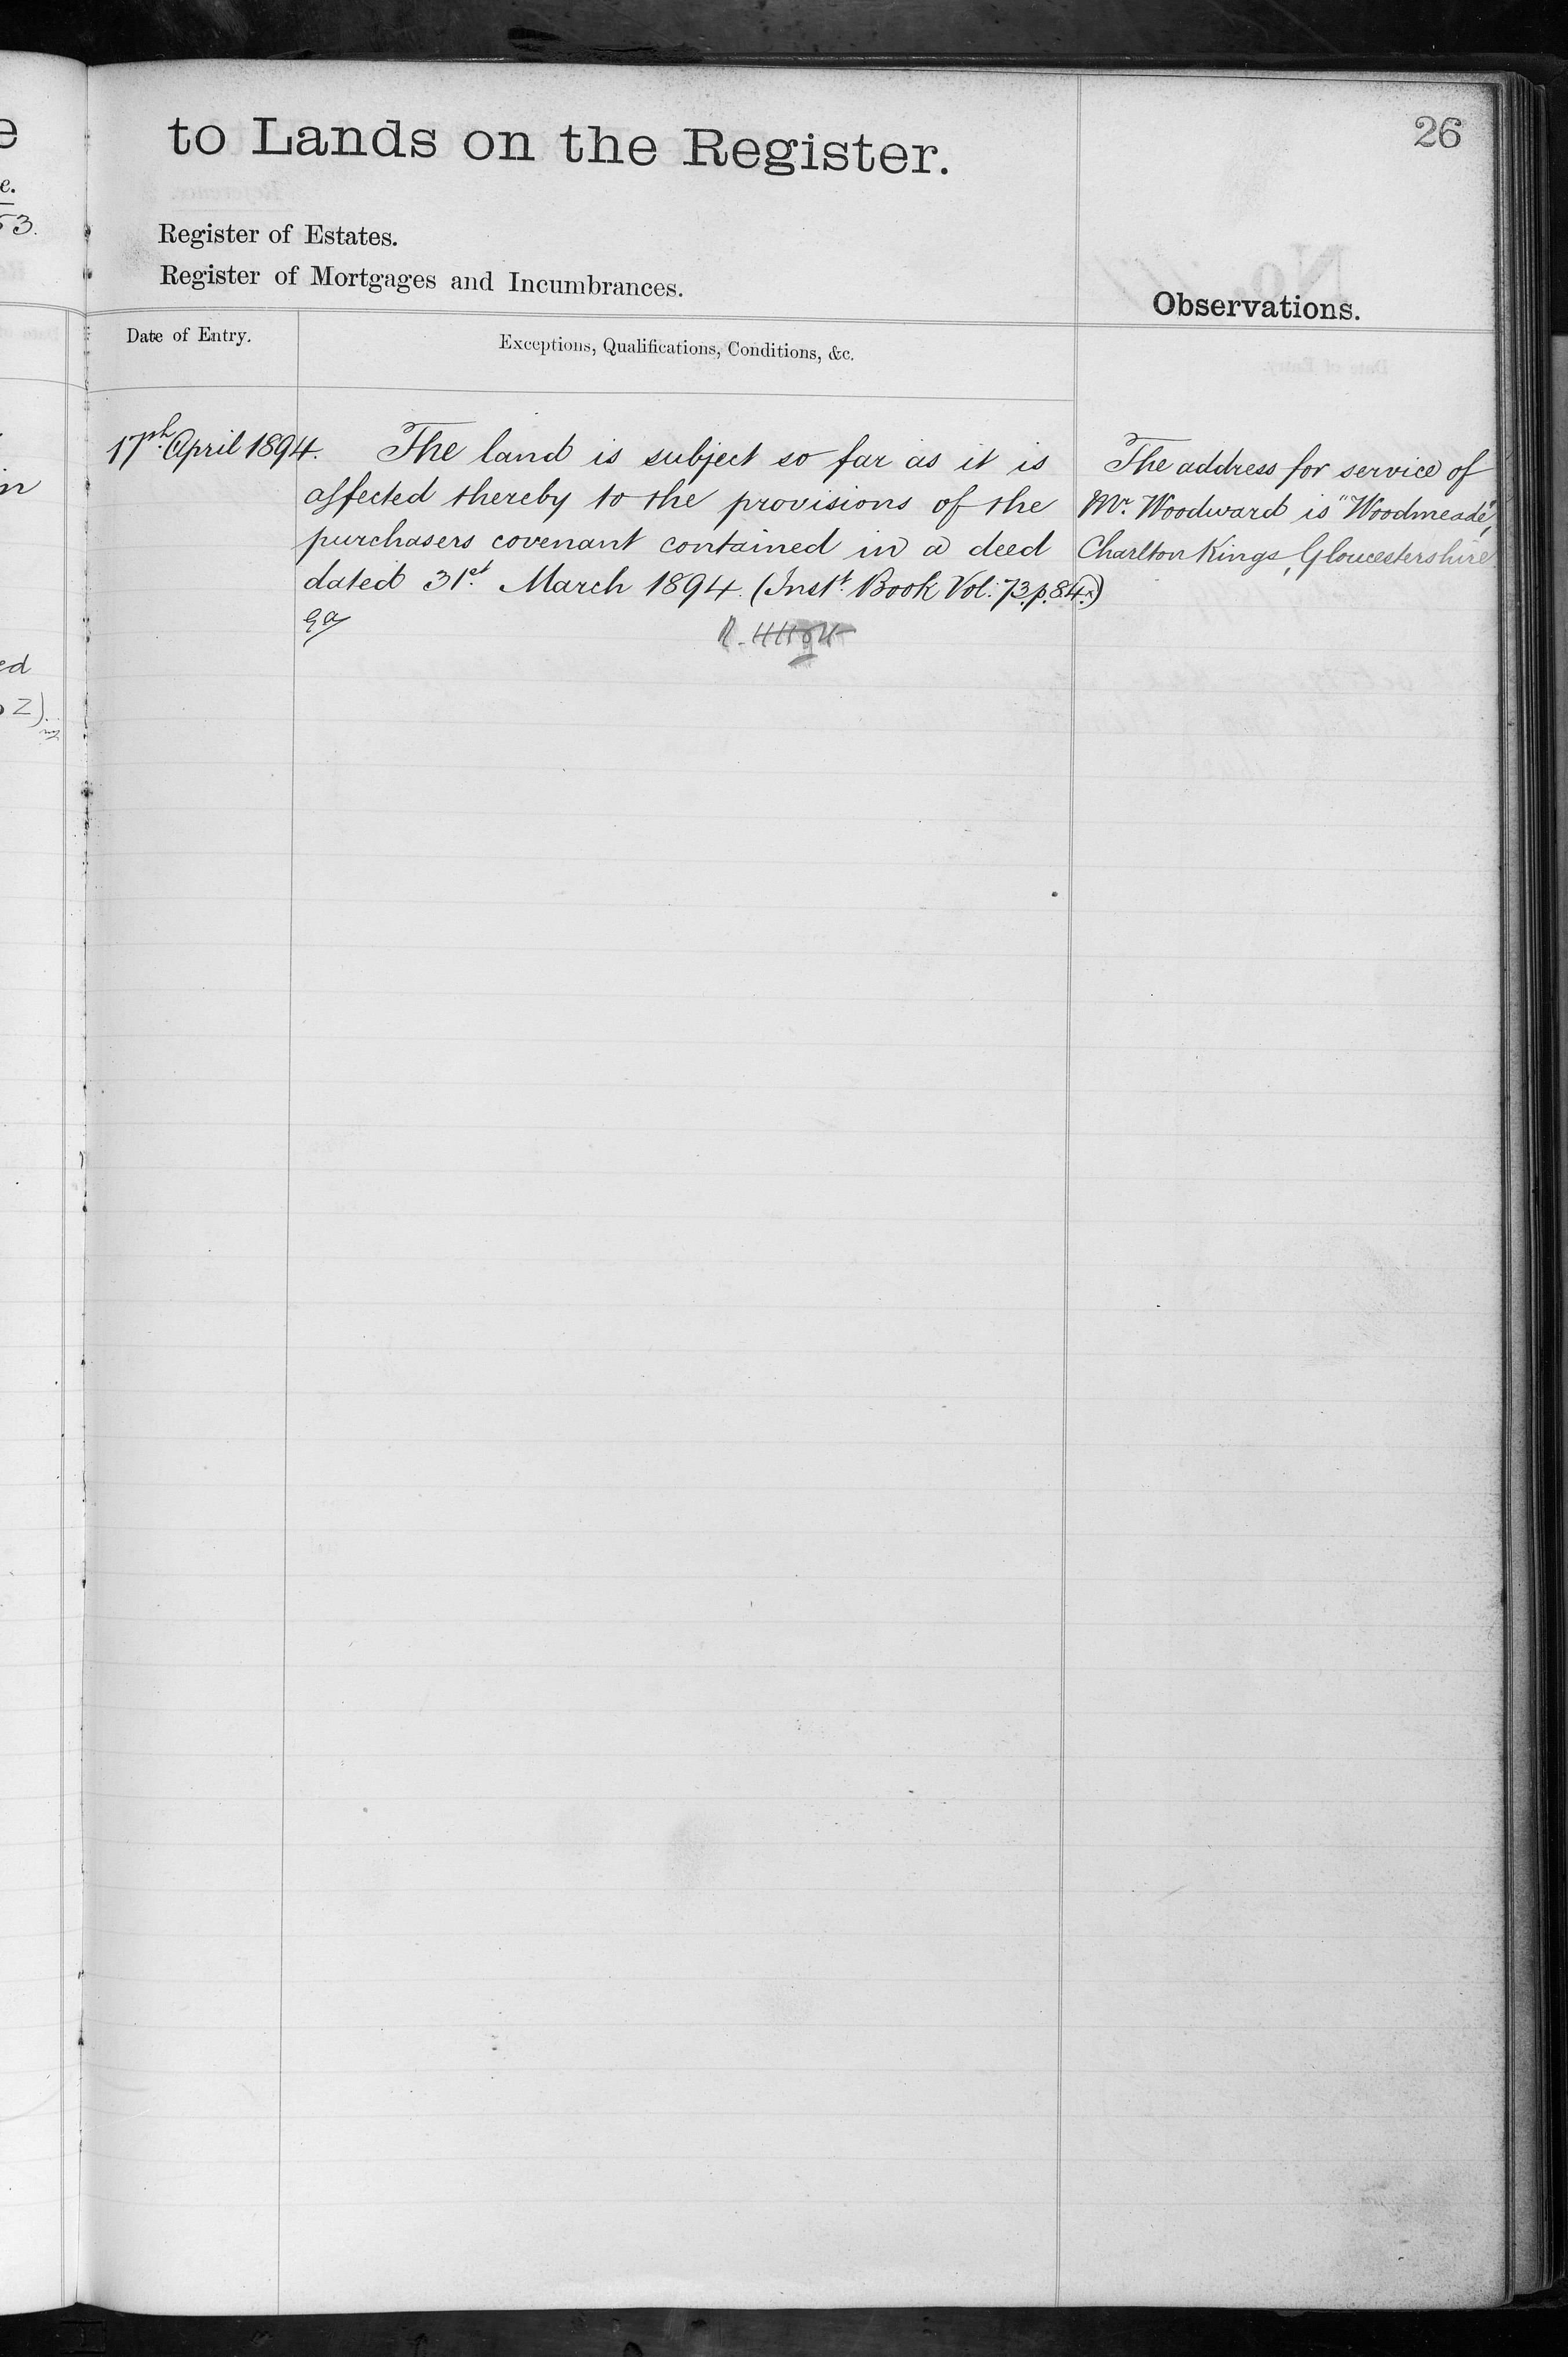 to Lands on the Register.
26
Register of Estates.
Register of Mortgages and Incumbrances.
Observations.
Date of Entry.
Exceptions, Qualifications, Conditions, &c.
17th April 1894.
The land is subject so far as it is
affected thereby to the provisions of the
purchasers covenant contained in a deed
dated 31st March 1894. (Inst. Book Vol: 73. p. 84.)
The address for service of
Mr. Woodward is "Woodmeade",
Charlton Kings, Gloucestershire
e
e.
53.
n
ed
2).